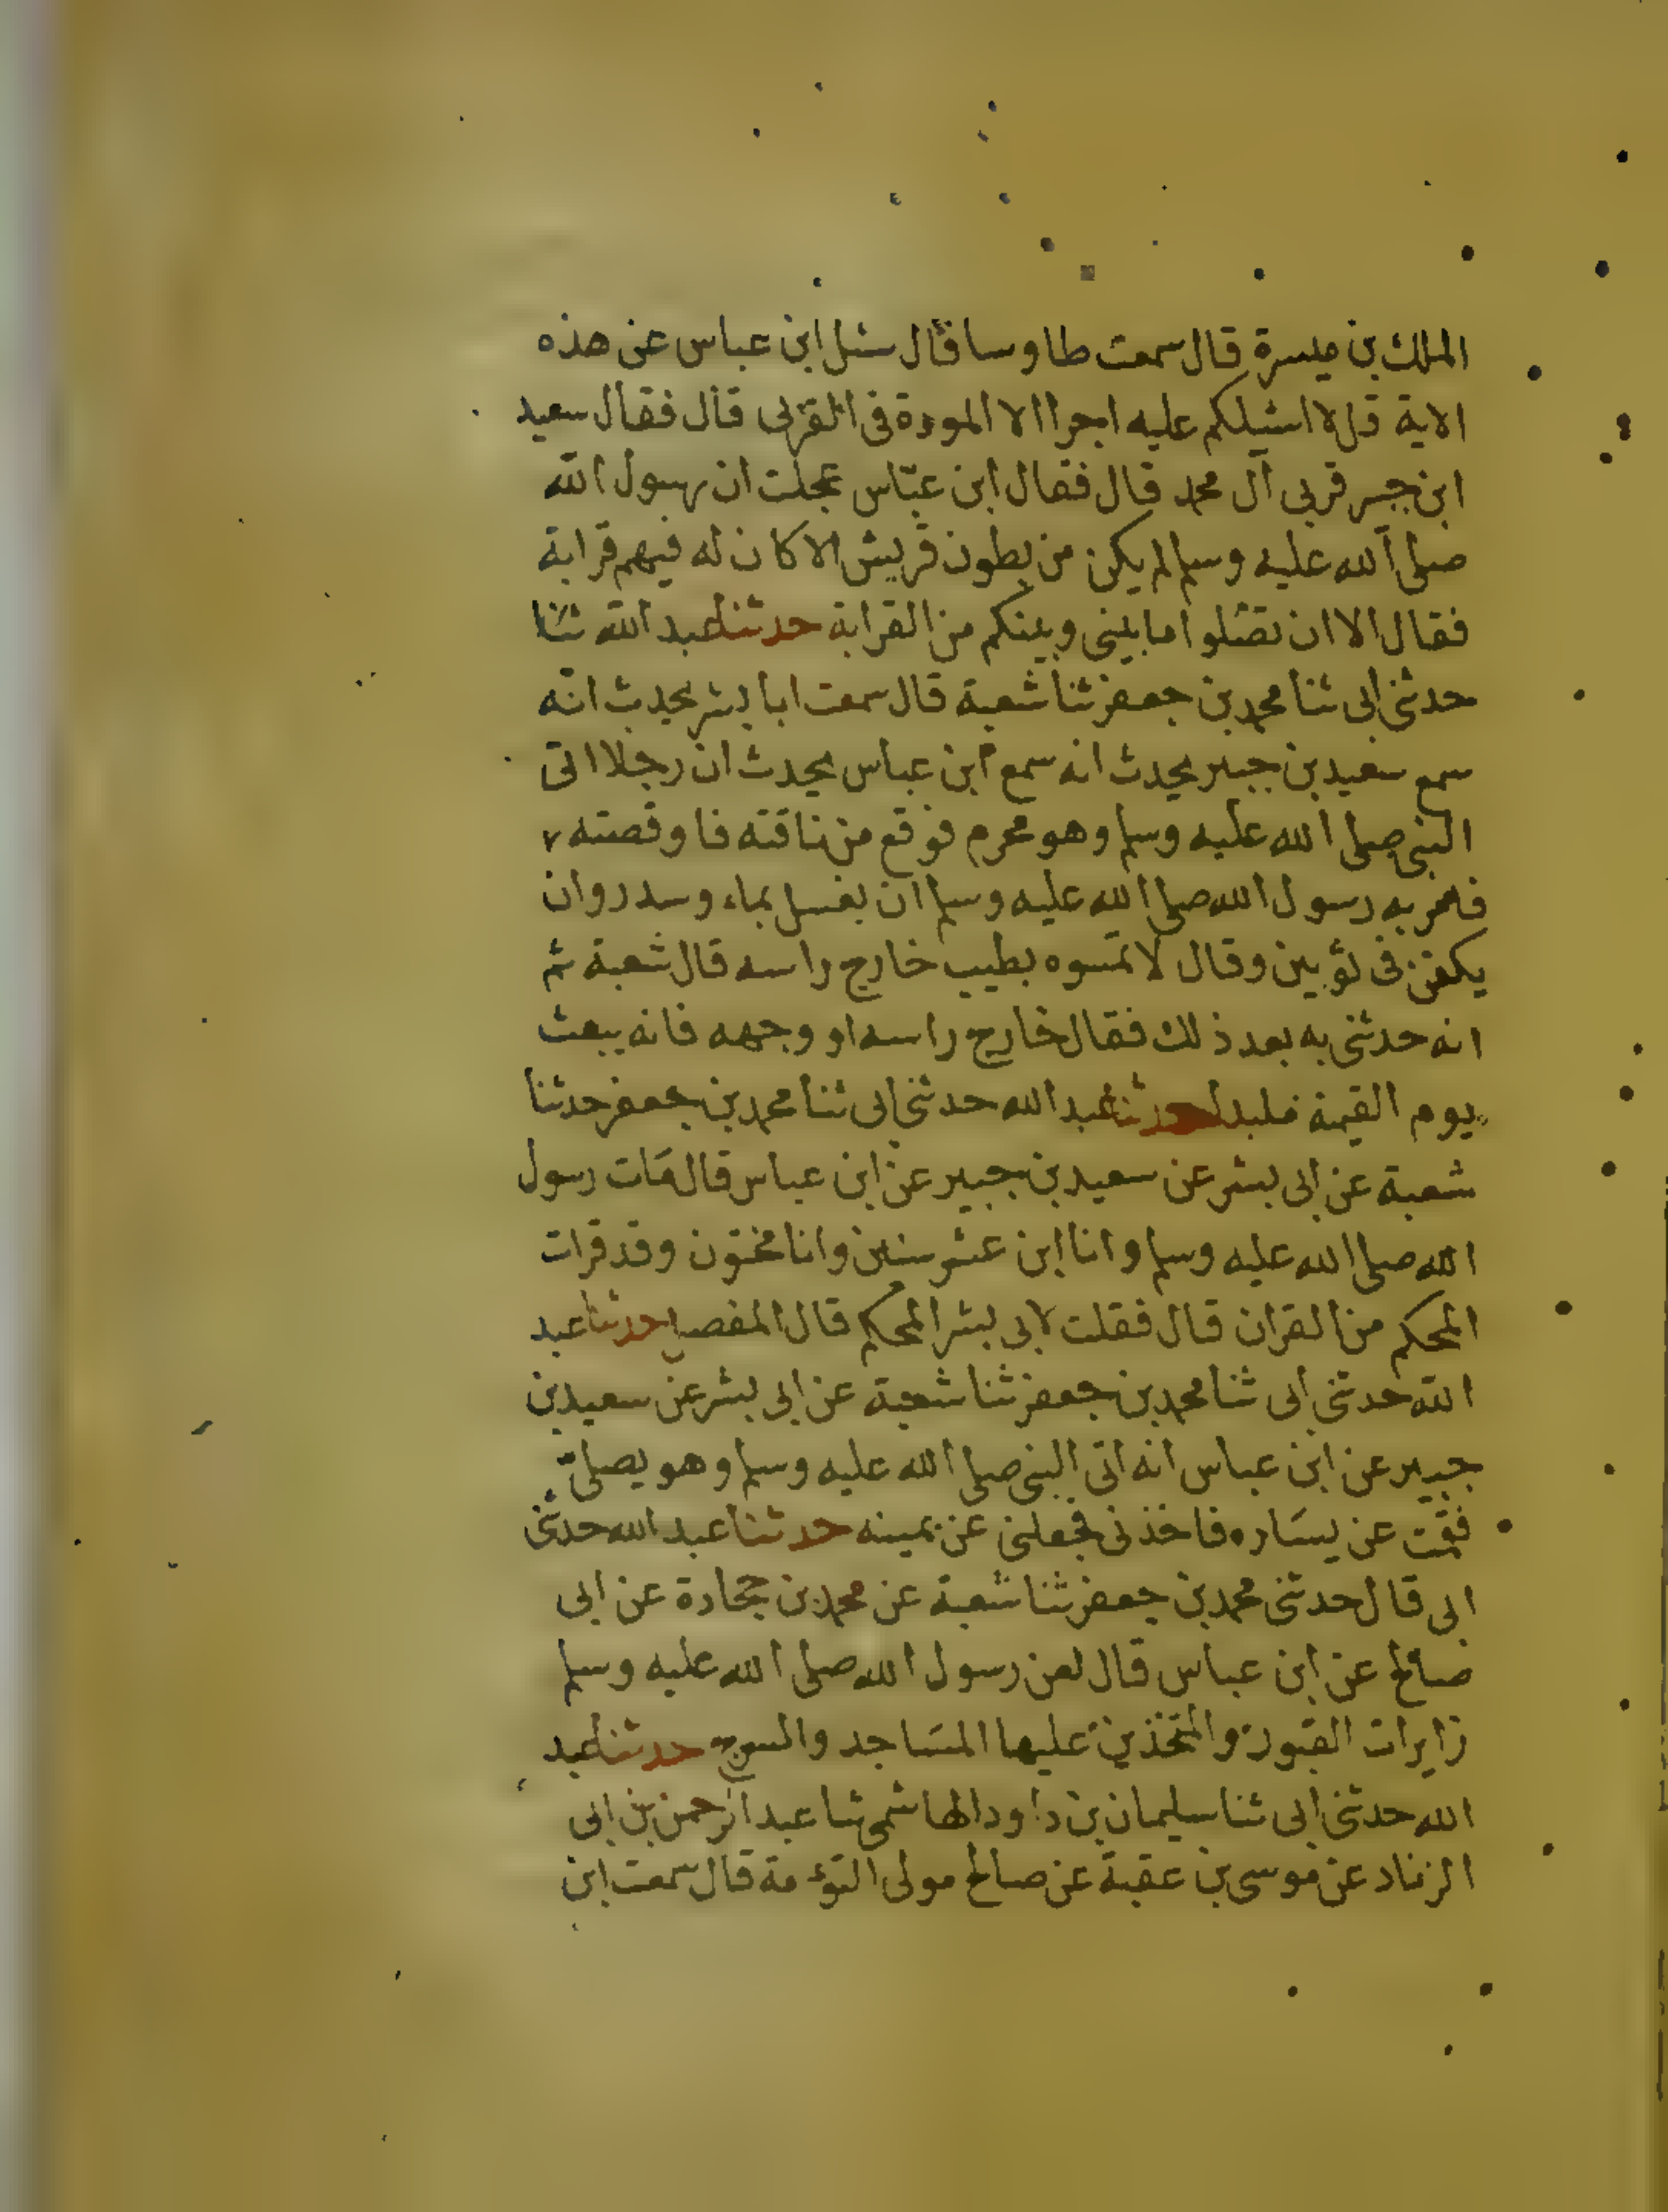 الملك بن ميسرة قال سمعت طاوسا قال سئل ابن عباس عن هذه
الاية قل لا اسئلكم عليه اجرا الا المودة فى القربى قال فقال سعيد
ابن جبير قربى آل محمد قال فقال ابن عبّاس عجلت ان رسول الله
صلى الله عليه وسلم لم يكن من بطون قريش الا كان له فيهم قرابة
فقال الا ان تصلوا ما بينى وبينكم من القرابة حدثنا عبد الله ثنا
حدثنى ابى ثنا محمد بن جعفر ثنا شعبة قال سمعت ابا بشر يحدث انه
سمع سعيد بن جبير يحدث انه سمع ابن عباس يحدث ان رجلا اتى
النبى صلى الله عليه وسلم وهو محرم فوقع من ناقته فاوقصته
فامر به رسول الله صلى الله عليه وسلم ان يغسل بماء وسدر وان
يكفن فى ثوبين وقال لا تمسوه بطيب خارج راسه قال شعبة ثم
انه حدثنى به بعد ذلك فقال خارج راسه او وجهه فانه يبعث
يوم القيمة ملبدا حدثنا عبد الله حدثنى ابى ثنا محمد بن جعفر حدثنا
شعبة عن ابى بشر عن سعيد بن جبير عن ابن عباس قال مات رسول
الله صلى الله عليه وسلم وانا ابن عشر سنين وانا مختون وقد قرات
المحكم من القران قال فقلت لابى بشر المحكم قال المفصل حدثنا عبد
الله حدثنى ابى ثنا محمد بن جعفر ثنا شعبة عن ابى بشر عن سعيد بن
جبير عن ابن عباس انه اتى النبى صلى الله عليه وسلم وهو يصلى
فقمت عن يساره فاخذنى فجعلنى عن يمينه حدثنا عبد الله حدثنى
ابى قال حدثنى محمد بن جعفر ثنا شعبة عن محمد بن جحادة عن ابى
صالح عن ابن عباس قال لعن رسول الله صلى الله عليه وسلم
زايرات القبور والمتخذين عليها المساجد والسرج حدثنا عبد
الله حدثنى ابى ثنا سليمان بن داود الهاشمى ثنا عبد الرحمن بن ابى
الزناد عن موسى بن عقبة عن صالح مولى التوءمة قال سمعت ابن